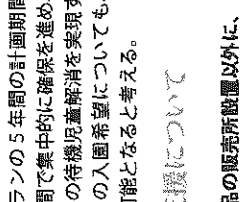 ランの５年間の計画期間
間で集中的に確保を進め、
の待機児童解消を実現す
の入園希望についても、
可能となると考える。
援について
品の販売所設置以外に、